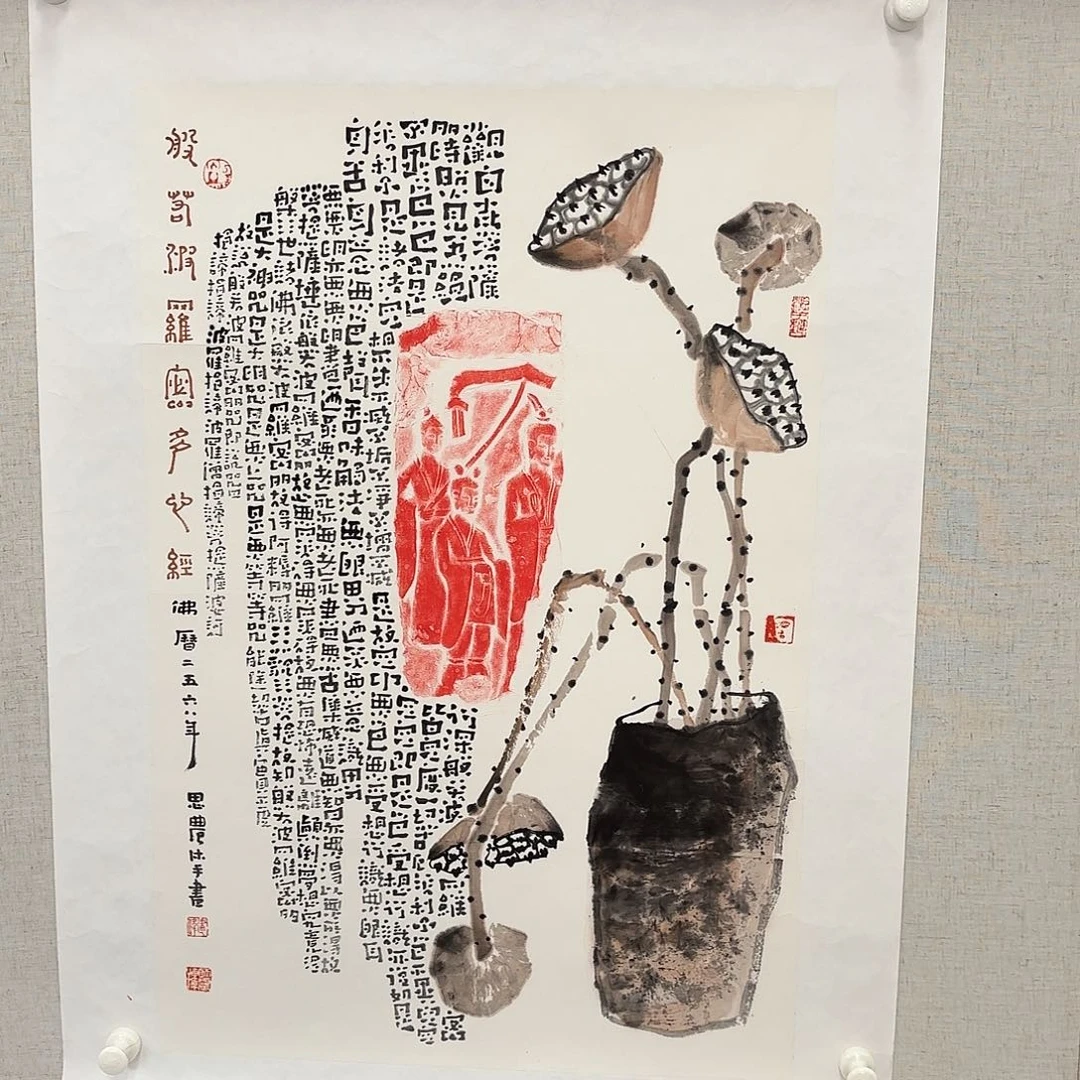 觀自在菩薩行深般若波羅蜜
多時照見五蘊皆空度一切苦厄舍利子色不異空
空不異色色即是空空即是色受想行識亦復如是
舍利子是諸法空相不生不滅不垢不淨不增不減是故空中無色無受想行識無眼耳
鼻舌身意無色聲香味觸法無眼界乃至無意識界
無無明亦無無明盡乃至無老死亦無老死盡無苦集滅道無智亦無得以無所得故
菩提薩埵依般若波羅蜜多故心無罣礙無罣礙故無有恐怖遠離顛倒夢想究竟涅
槃三世諸佛依般若波羅蜜多故得阿耨多羅三藐三菩提故知般若波羅蜜多
是大神咒是大明咒是無上咒是無等等咒能除一切苦真實不虛
故說般若波羅蜜多咒即說咒曰
揭諦揭諦波羅揭諦波羅僧揭諦菩提薩婆訶
般若波羅蜜多心經 佛曆二五六八年 思農沐手書